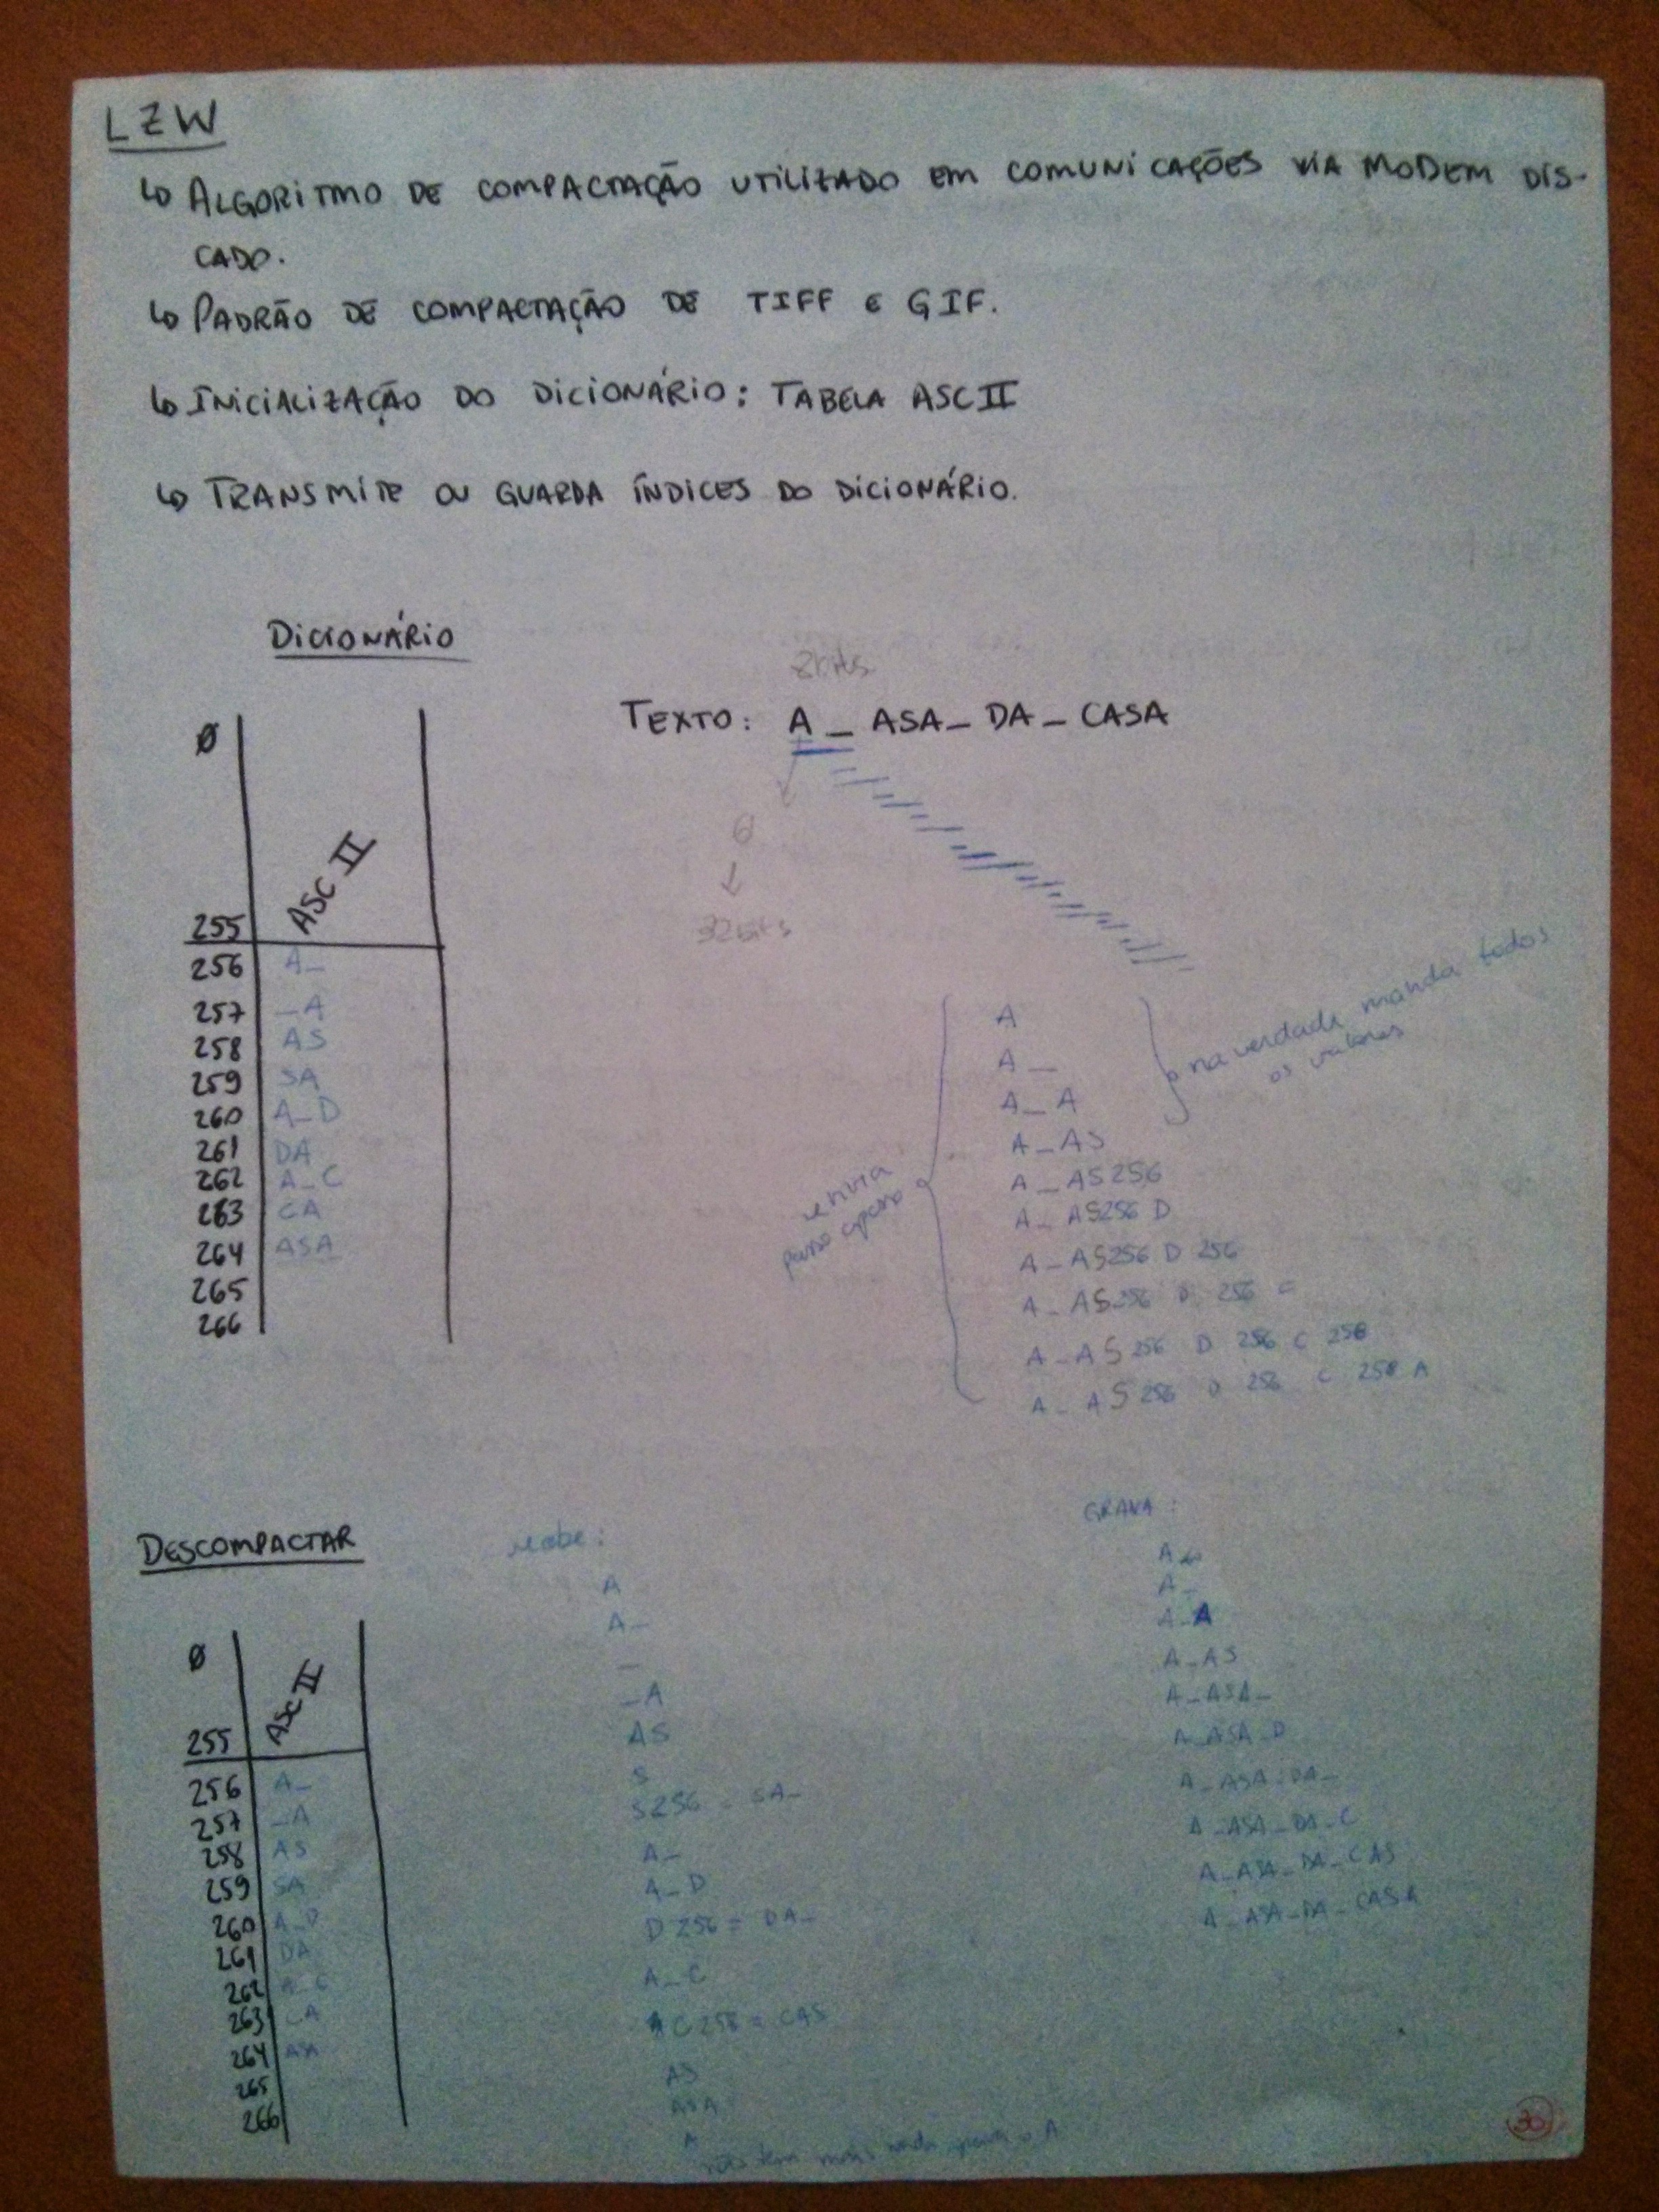 LZW
↳ ALGORITMO DE COMPACTAÇÃO UTILIZADO EM COMUNICAÇÕES VIA MODEM DIS-
CADO.
↳ PADRÃO DE COMPACTAÇÃO DE TIFF E GIF.
↳ INICIALIZAÇÃO DO DICIONÁRIO: TABELA ASCII
↳ TRANSMITE OU GUARDA ÍNDICES DO DICIONÁRIO.
DICIONÁRIO
8bits
TEXTO: A_ASA_DA_CASA
Ø
ASCII
255
256 A_
257 _A
258 AS
259 SA
260 A_D
261 DA
262 A_C
263 CA
264 ASA
265
266
↓
32bits
envia
passo a passo
A
A_
A_A
A_AS
A_AS256
A_AS256 D
A_AS256 D 256
A_AS256 D 256 C
A_AS256 D 256 C 258
A_AS256 D 256 C 258 A
na verdade manda todos
os valores
DESCOMPACTAR
Ø
ASCII
255
256 A_
257 _A
258 AS
259 SA
260 A_D
261 DA
262 A_C
263 CA
264 ASA
265
266
recebe:
A
A_
_
_A
AS
S
S256 = SA_
A_
A_D
D256 = DA_
A_C
C258 = CAS
AS
ASA
A
não tem mais nada para o A
GRAVA:
A
A_
A_A
A_AS
A_ASA_
A_ASA_D
A_ASA_DA_
A_ASA_DA_C
A_ASA_DA_CAS
A_ASA_DA_CASA
30